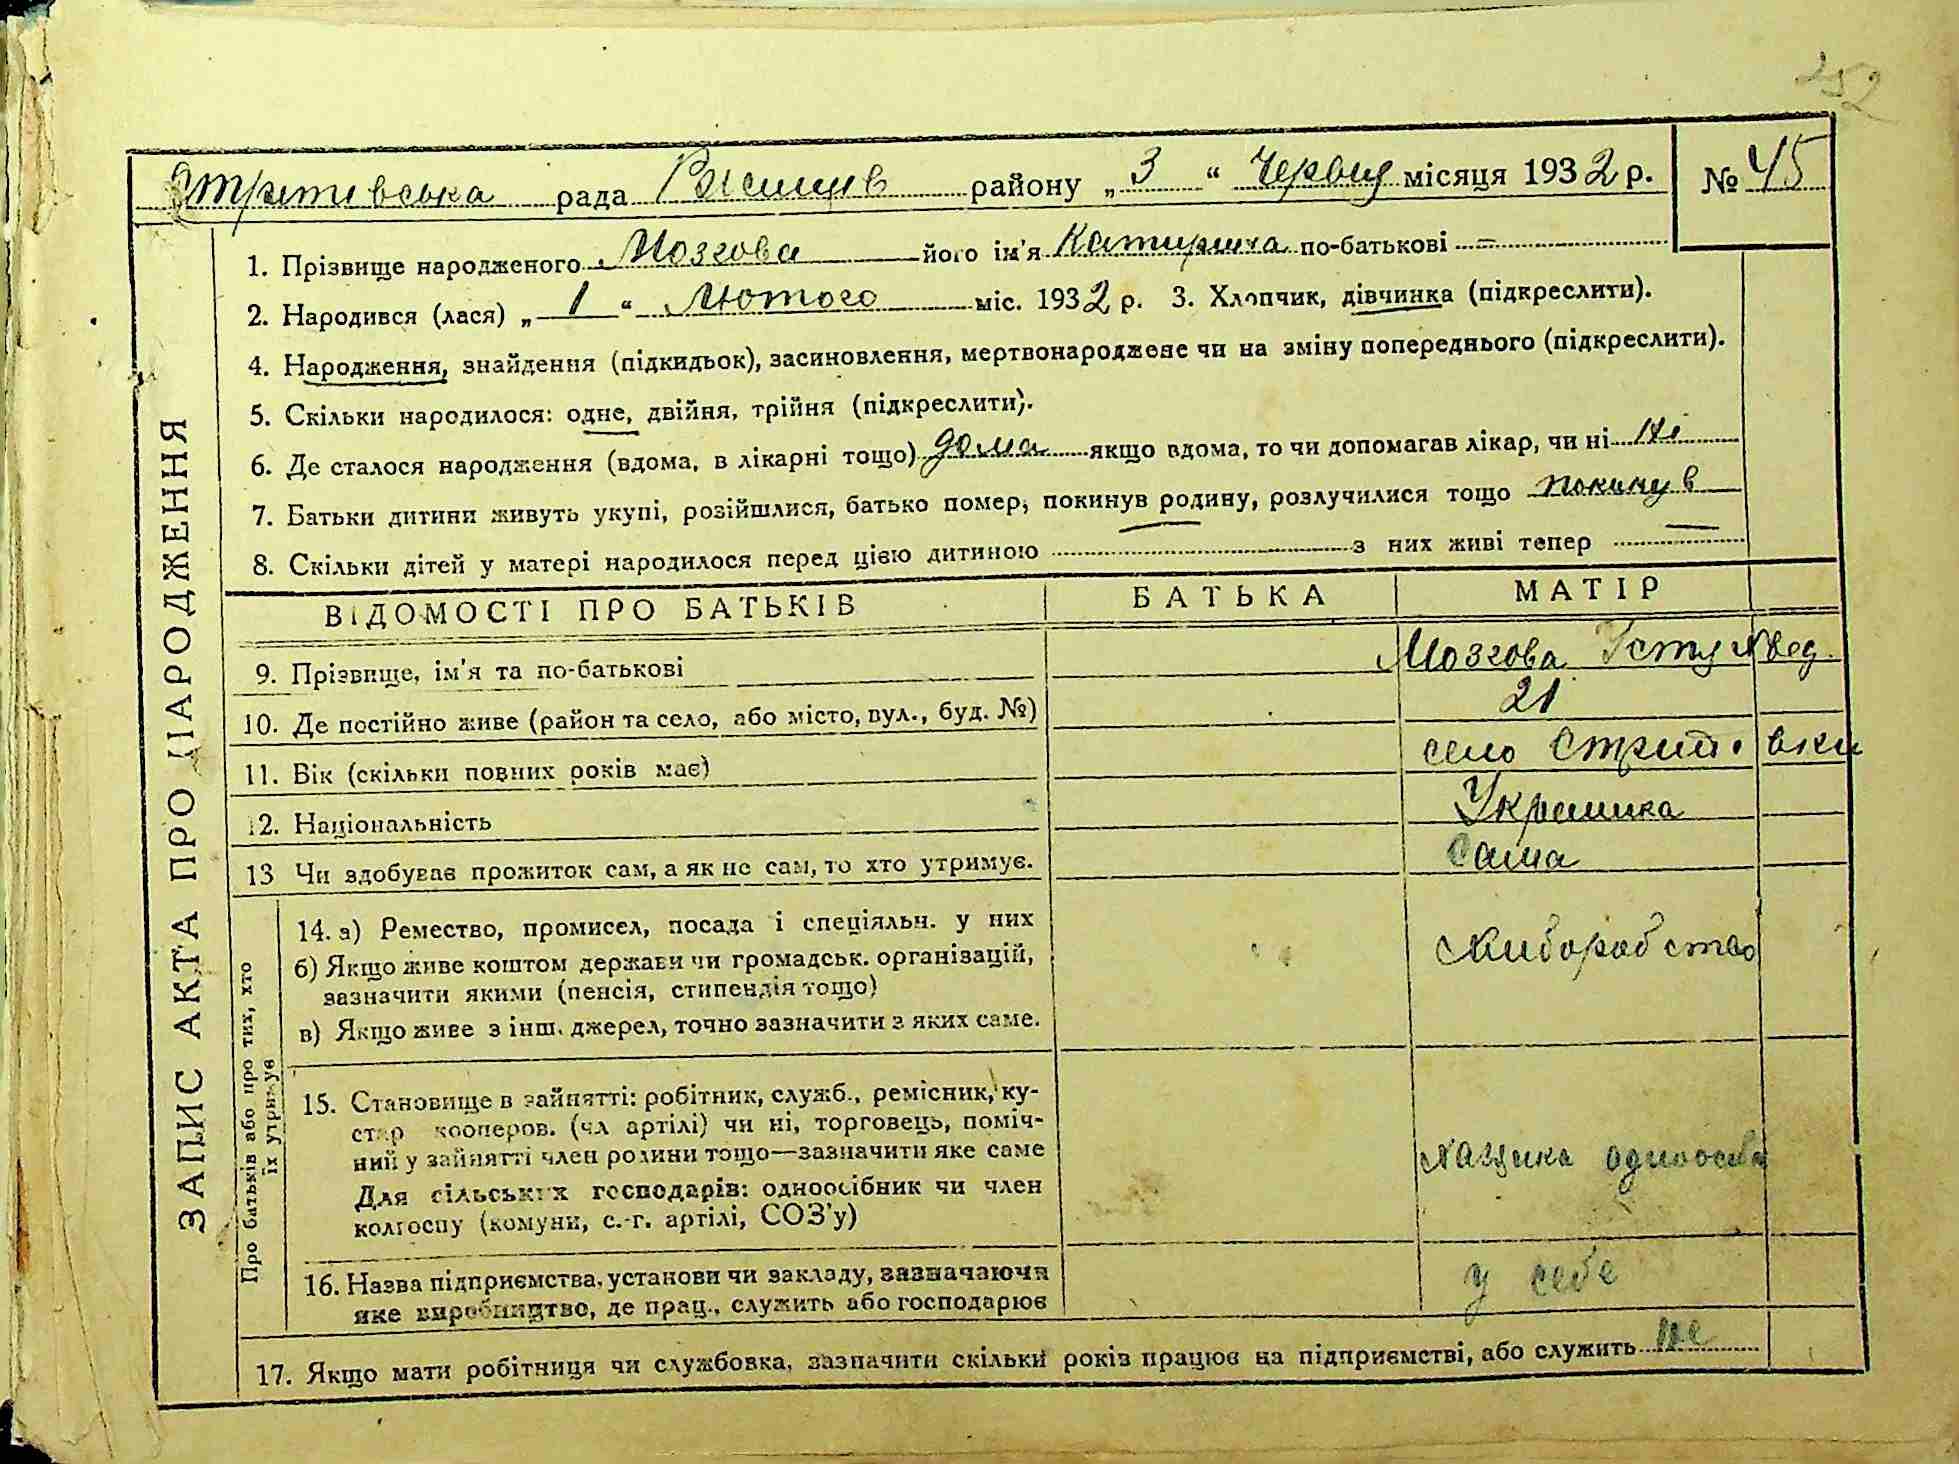 252
Стритівська рада Ржищів району „3“ Червня місяця 1932 р. № 45
ЗАПИС АКТА ПРО НАРОДЖЕННЯ
1. Прізвище народженого Мозгова його ім'я Катирина по-батькові –
2. Народився (лася) „1“ Лютого міс. 1932 р. 3. Хлопчик, дівчинка (підкреслити).
4. Народження, знайдення (підкидьок), засиновлення, мертвонароджене чи на зміну попереднього (підкреслити).
5. Скільки народилося: одне, двійня, трійня (підкреслити).
6. Де сталося народження (вдома, в лікарні тощо) дома якщо вдома, то чи допомагав лікар, чи ні ні
7. Батьки дитини живуть укупі, розійшлися, батько помер, покинув родину, розлучилися тощо покинув
8. Скільки дітей у матері народилося перед цією дитиною — з них живі тепер —
ВІДОМОСТІ ПРО БАТЬКІВ БАТЬКА МАТІР
9. Прізвище, ім'я та по-батькові Мозгова Устя
10. Де постійно живе (район та село, або місто, вул., буд. №) 21
11. Вік (скільки повних років має) село
12. Національність Украинка
13 Чи здобуває прожиток сам, а як не сам, то хто утримує. Сама
Про батьків або про тих, хто
їх утримує
14. а) Ремество, промисел, посада і спеціяльн. у них
б) Якщо живе коштом держави чи громадськ. організацій,
зазначити якими (пенсія, стипендія тощо)
в) Якщо живе з інш. джерел, точно зазначити з яких саме.
15. Становище в зайнятті: робітник, служб., ремісник, ку-
стар кооперов. (чл артілі) чи ні, торговець, поміч-
ний у зайнятті член родини тощо—зазначити яке саме
Для сільських господарів: одноосібник чи член
колгоспу (комуни, с.-г. артілі, СОЗ'у)
16. Назва підприємства, установи чи закладу, зазначаючи
яке виробництво, де прац., служить або господарює
у себе
17. Якщо мати робітниця чи службовка, зазначити скільки років працює на підприємстві, або служить не